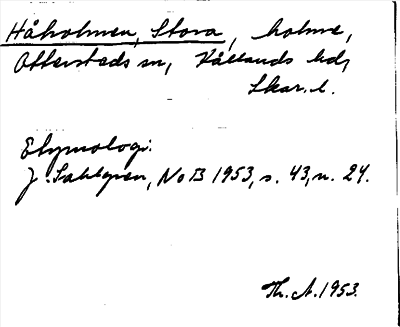 Håholmen, Stora, holme,
Otterstads sn, Kållands hd,
Skar. l.
Etymologi.
J. Sahlgren, NoB 1953, s. 43, n. 24.
Th. A. 1953.